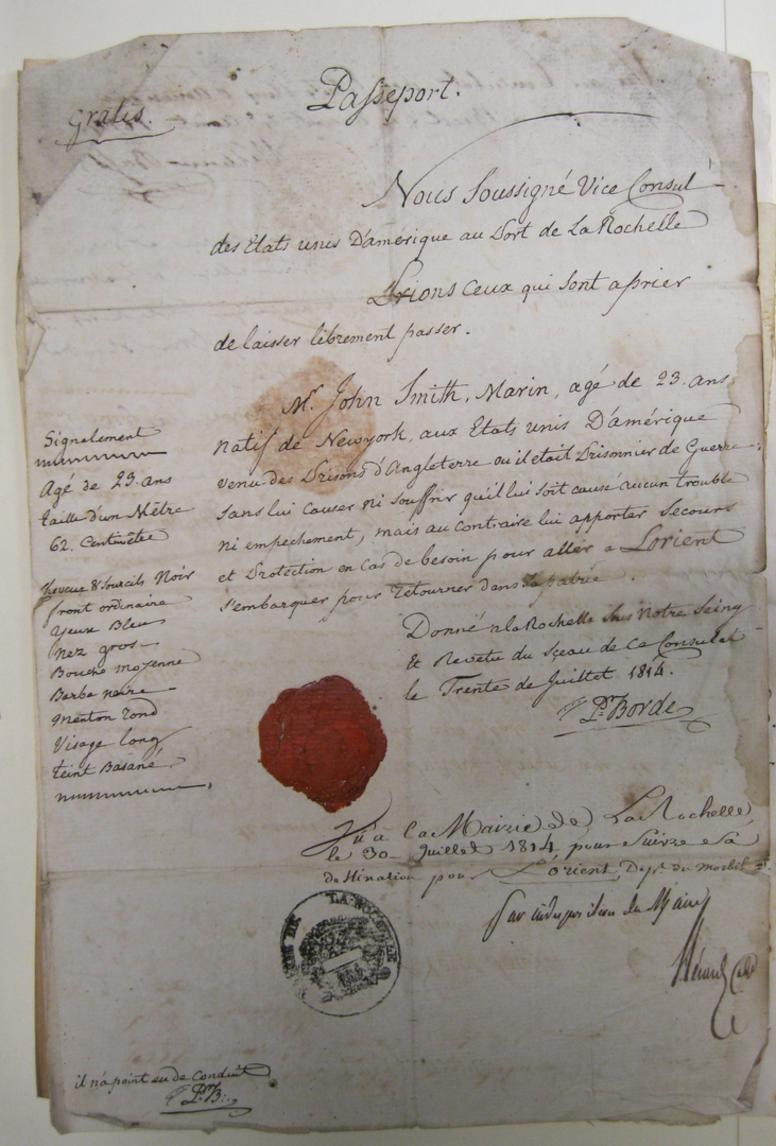 Gratis.
Passeport.
Nous Soussigné Vice Consul
des Etats unis D'amérique au Port de La Rochelle
Prions Ceux qui Sont a prier
de laisser librement passer.
Mr. John Smith, Marin, agé de 23. ans
natif de Newyork, aux Etats unis D'amérique
venu des Prisons d'Angleterre ou il etait Prisonnier de Guerre,
Sans lui causer ni Souffrir qu'il lui soit causé aucun trouble
ni empechement, mais au contraire lui apporter Secours
et Protection en Cas de besoin pour aller a Lorient
s'embarquer pour retourner dans sa patrie.
Signalement
Agé de 23. ans
taille d'un Mêtre
62. Centimêtre
Cheveux & Sourcils Noir
front ordinaire
Yeux Bleu
Nez gros
Bouche moyenne
Barbe noire
Menton rond
Visage long
teint Basané
Donné a la Rochelle Sous Notre Seing
& Revetu du Sceau de Ce Consulat
le Trente de Juillet 1814.
Pr. Borde
Vu a la Mairie de La Rochelle,
le 30 Juillet 1814 pour Suivre a Sa
destination pour L'orient, Dept. du Morbihan
Par indisposition du Maire
LA ROCHELLE
il n'a point eu de Conduite
Pr. B.